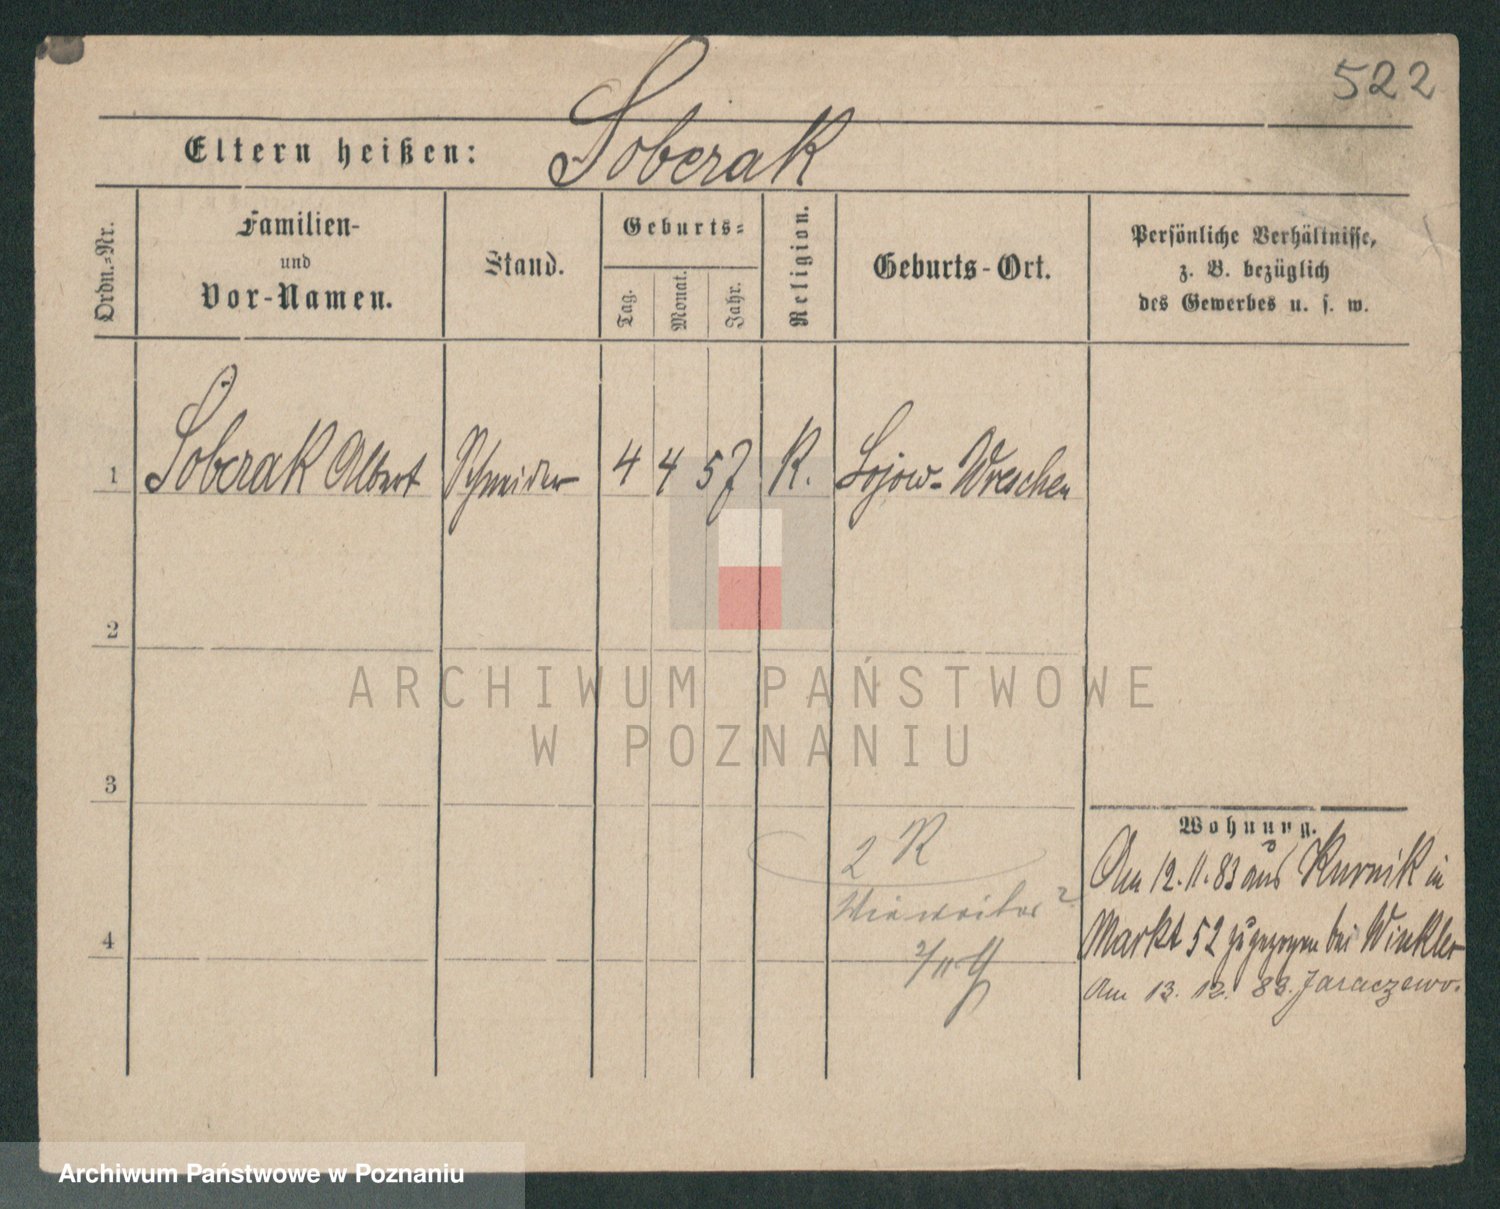 522
Eltern heißen: Soberak
Ordn.=Nr.
Familien-
und
Vor-Namen.
Stand.
Geburts=
Tag.
Monat.
Jahr.
Religion.
Geburts-Ort.
Persönliche Verhältnisse,
z. B. bezüglich
des Gewerbes u. s. w.
1 Soberak Albert Schneider 4 4 57 K. Sojow- Wreschen
2
3
4
2 K
Wohnung.
Am 12.11.83 aus Kurnik in
Markt 52 zugezogen bei Winkler
Am 13. 12. 83. Jaraczewo.
ARCHIWUM PAŃSTWOWE
W POZNANIU
Archiwum Państwowe w Poznaniu